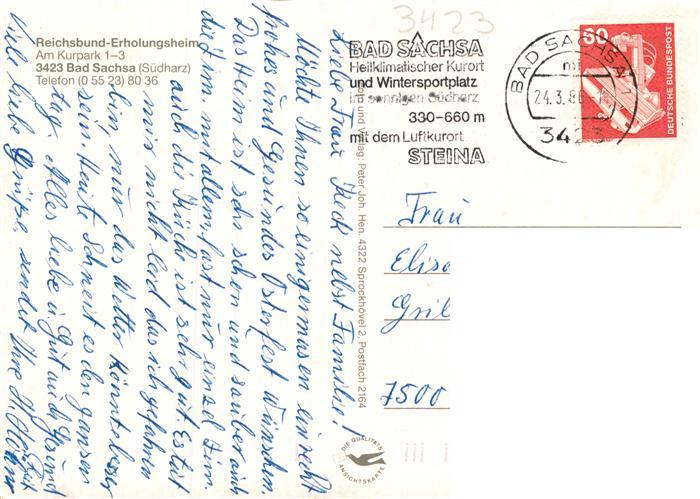 3423
Reichsbund-Erholungsheim
Am Kurpark 1–3
3423 Bad Sachsa (Südharz)
Telefon (0 55 23) 80 36
BAD SACHSA
Heilklimatischer Kurort
und Wintersportplatz
im sonnigen Südharz
330–660 m
mit dem Luftkurort
STEINA
BAD SACHSA 1
24.3.86
3423
60
DEUTSCHE BUNDESPOST
Liebe Frau nebst Familie!
Möchte Ihnen so einigermasen ein recht
frohes und gesundes Osterfest wünschen.
Das Heim ist sehr schön und sauber auch
mit allem, fast nur einzel Zim.
auch die Küche ist sehr gut. Es tut
mir nicht leid das ich gefahren
bin, nur das Wetter könnte besser
sein. Heute Schneit es den ganzen
Tag. Alles liebe u. Gut auch Gesund
Viele liebe Grüsse, sendet Ihre
Verlag: Peter Joh. Hen. 4322 Sprockhövel 2, Postfach 2164
Frau
Elisa
Gril
7500
DIE QUALITÄTS
ANSICHTSKARTE